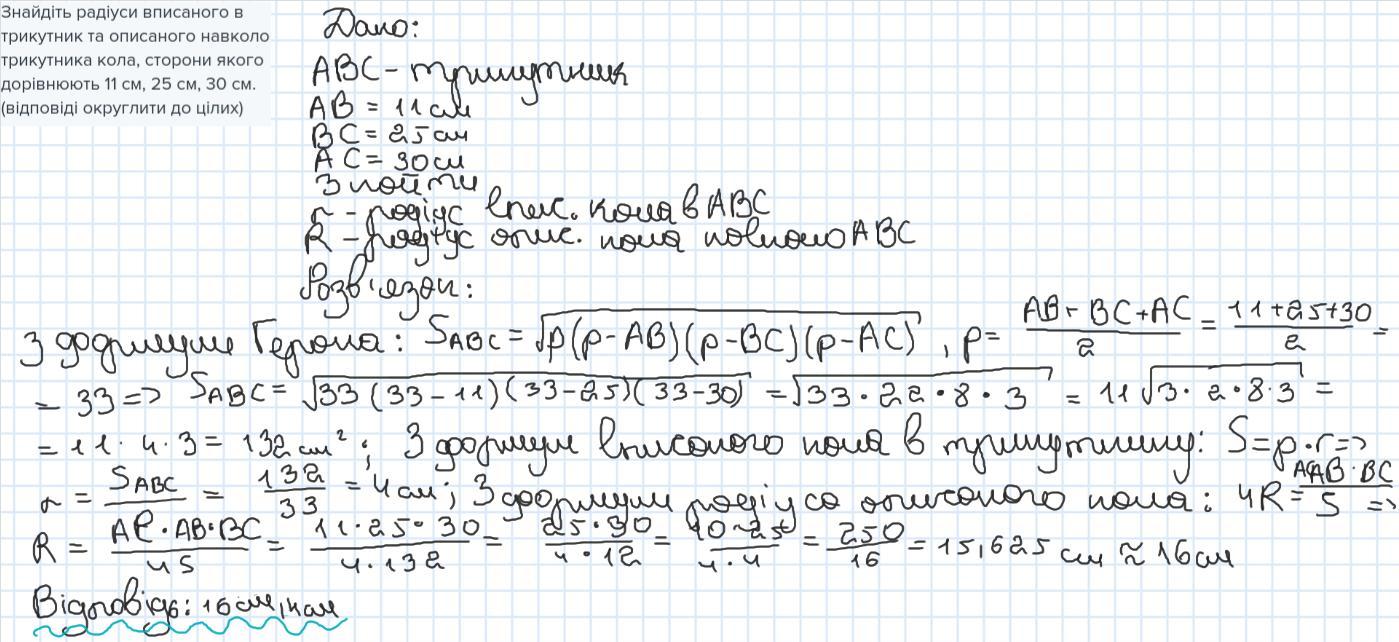 Знайдіть радіуси вписаного в
трикутник та описаного навколо
трикутника кола, сторони якого
дорівнюють 11 см, 25 см, 30 см.
(відповіді округлити до цілих)
Дано:
ABC - трикутник
AB = 11 см
BC = 25 см
AC = 30 см
Знайти
r - радіус впис. кола в ABC
R - радіус опис. кола навколо ABC
Розв'язок:
З формули Герона: S_ABC = √(p(p-AB)(p-BC)(p-AC)), p = (AB+BC+AC)/2 = (11+25+30)/2 =
= 33 => S_ABC = √(33(33-11)(33-25)(33-30)) = √(33·22·8·3) = 11√(3·2·8·3) =
= 11·4·3 = 132 см²; З формул вписаного кола в трикутнику: S=p·r=>
r = S_ABC/33 = 132/33 = 4 см; З формули радіуса описаного кола: 4R = AC·AB·BC/S =>
R = AC·AB·BC/4S = 11·25·30/4·132 = 25·30/4·12 = 10·25/4·4 = 250/16 = 15,625 см ≈ 16 см
Відповідь: 16 см, 4 см